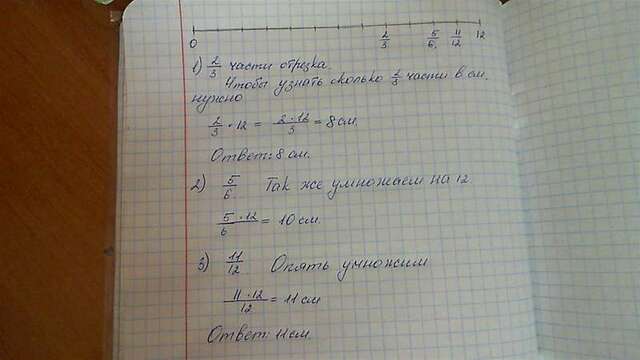 0 2/3 5/6 11/12 12
1) 2/3 части отрезка.
Чтобы узнать сколько 2/3 части в см.
нужно
2/3 · 12 = 2·12/3 = 8 см.
Ответ: 8 см.
2) 5/6 Так же умножаем на 12
5·12/6 = 10 см.
3) 11/12 Опять умножим
11·12/12 = 11 см
Ответ: 11 см.